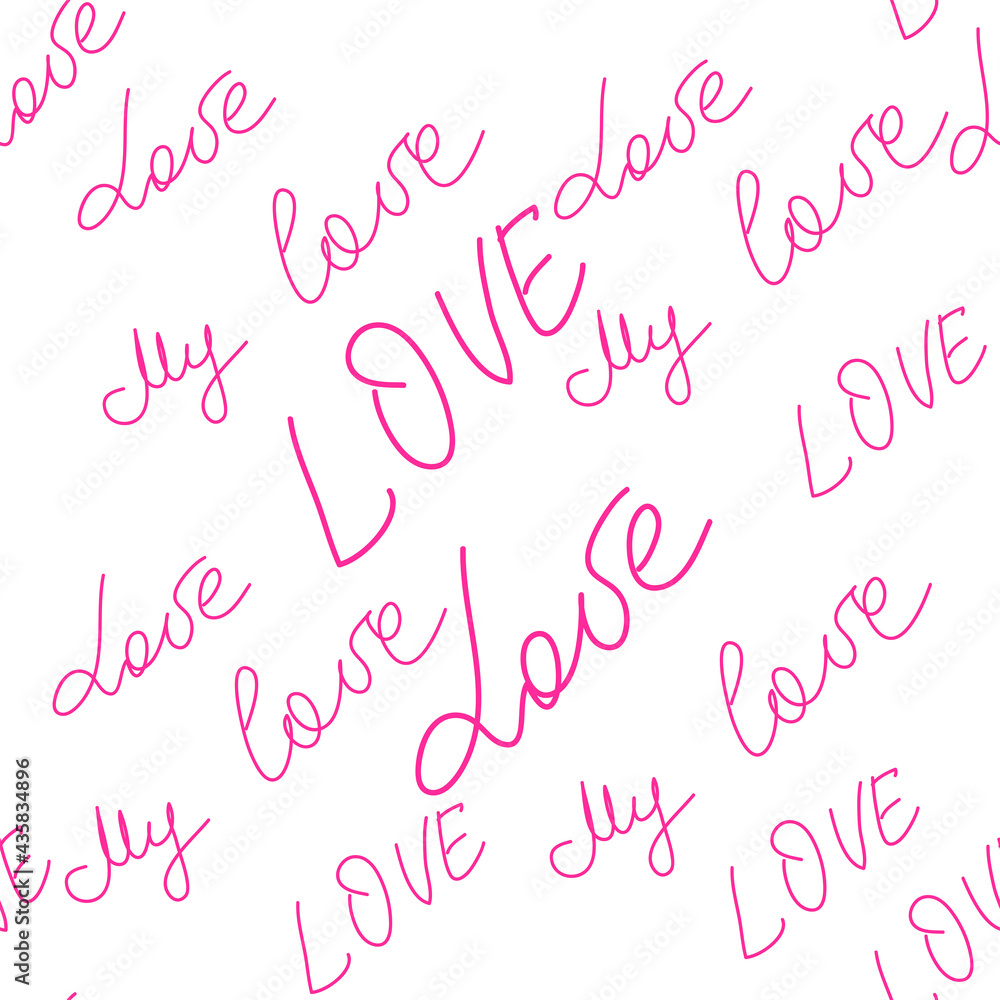 ove
Love
love
Love
love
L
LOVE
My
My
LOVE
Love
Love
love
love
My
LOVE
My
LOVE
LOV
E
Adobe Stock | #435834896